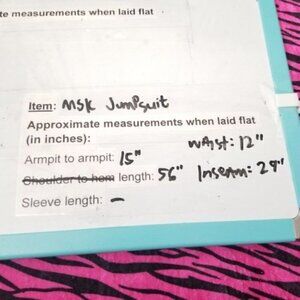 te measurements when laid flat
Item: MSK Jumpsuit
Approximate measurements when laid flat
(in inches): waist: 12"
Armpit to armpit: 15"
Shoulder to hem length: 56" Inseam: 29"
Sleeve length: –